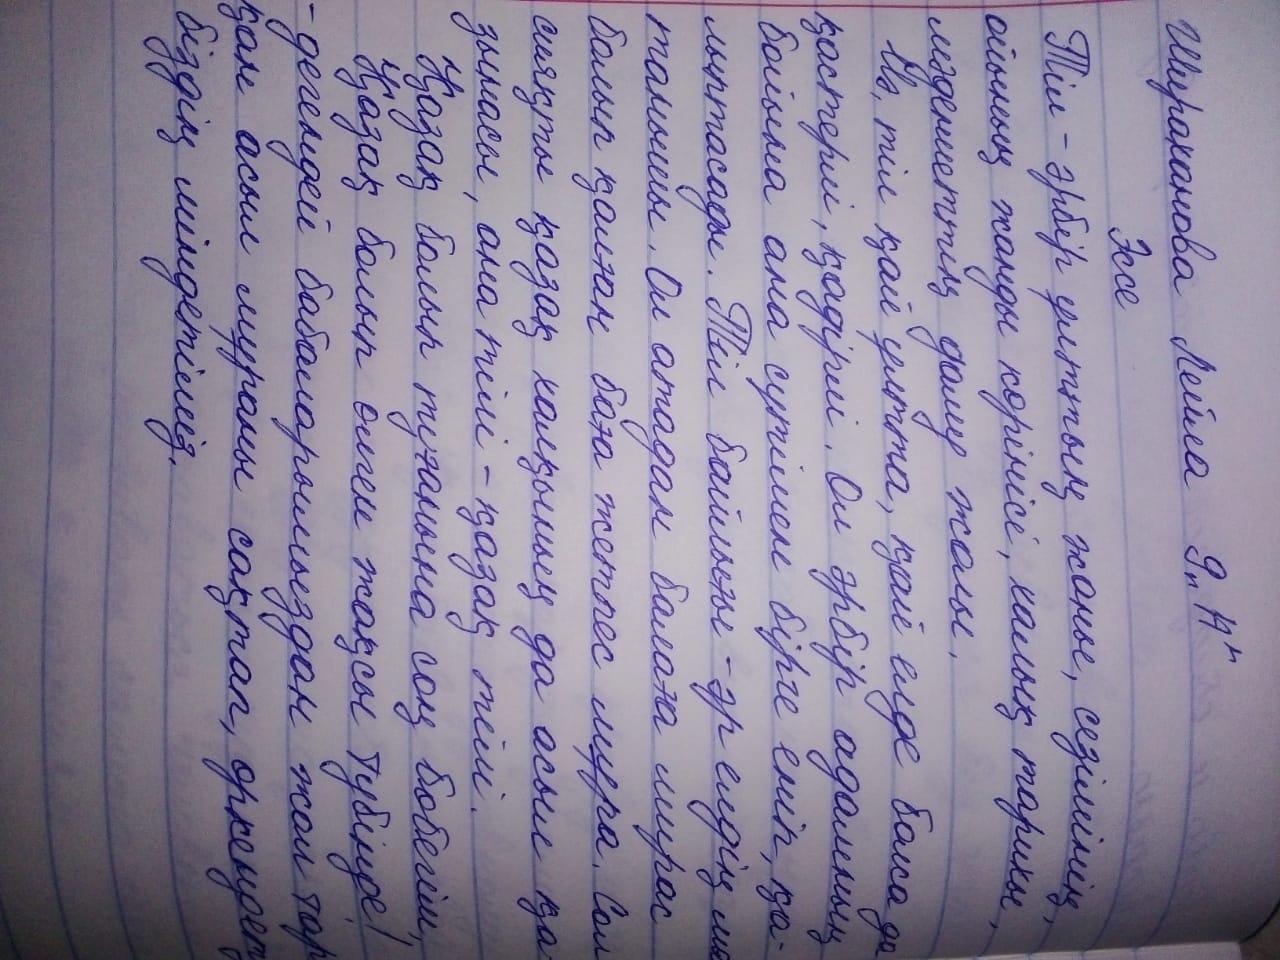 Шираханова Лейла 9 "А"
Эссе
Тіл - әрбір ұлттың жаны, сезімінің,
ойының жанды көрінісі, халық тарихы,
мәдениеттің даму жолы.
Иә, тіл қай ұлтта, қай елде болса да
қастерлі, қадірлі. Ол әрбір адамның
бойына ана сүтімен бірге еніп, қа-
лыптасады. Тіл байлығы - әр елдің ма
танышы. Ол атадан балаға мирас
болып қалған баға жетпес мұра. Сол
сияқты қазақ халқының да асыл қа
зынасы, ана тілі - қазақ тілі.
Қазақ болып туғаныңа соң бөбегім,
Қазақ болып өлген жақсы түбінде!
- дегендей бабаларымыздан жол тар
қан асыл мұраны сақтап, өркендет
біздің міндетіміз.